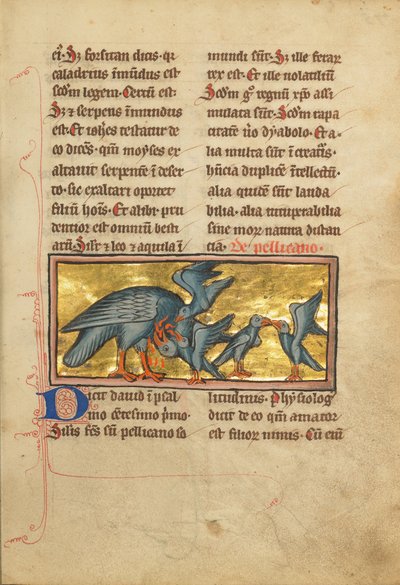 ei᷒. Iz forsitan dicis. qꝛ
caladrius īmūdus est
scd̄m legem. Certū est.
Iz & serpens īmundus
est. Et ioh̄es testatur de
eo dicēs. qm̄ moyses ex
altauit serpentē ī deser
to. sic exaltari oportet
filiū hoīs. Et alibi. pru
dentior est omnibꝰ besti
arū. Silr̄ & leo & aquila ī
mundi sūt. Iz ille feraꝝ
rex est. Et ille uolatiliū.
Scd̄m gͦ regnū xp̄o assi
milata sūt. Scd̄m rapa
citatē uͦ dyabolo. Et a
lia multa sūt ī creatͥs.
hn̄cia duplicē ītellectū.
alia quidē sūt lauda
bilia. alia uituperabilia
siue moꝝ distan
cia. De pellicano.
Dicit dauid ī psal
mo cētesimo pͥmo.
Silis fc̄s sū pellicano so
litudinis. Phisiologꝰ
dicit de eo qm̄ amator
est filioꝝ nimis. Cū eni